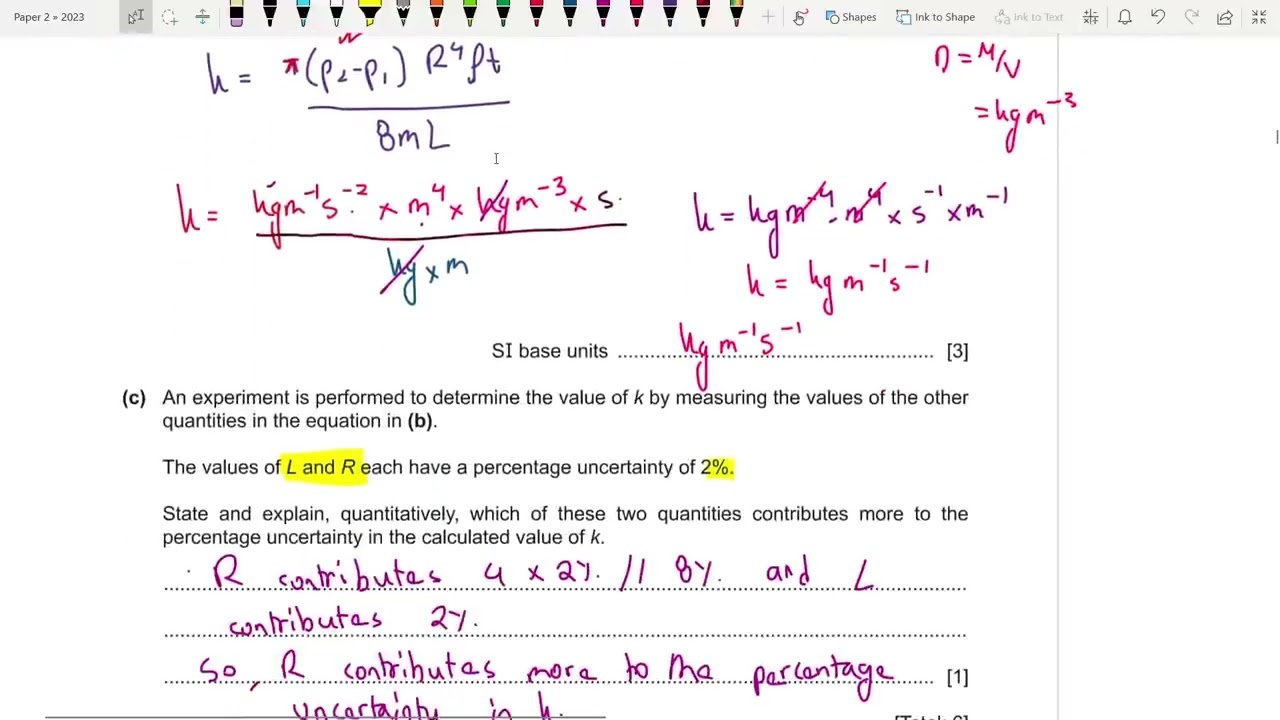 Paper 2 » 2023
Shapes
Ink to Shape
Ink to Text
k = π(p₂-p₁) R⁴ρt
8mL
D = M/V
= kg m⁻³
k = kgm⁻¹s⁻² × m⁴ × kgm⁻³ × s
kg × m
k = kg m⁻⁴ . m⁴ × s⁻¹ × m⁻¹
k = kg m⁻¹ s⁻¹
SI base units kg m⁻¹ s⁻¹ [3]
(c) An experiment is performed to determine the value of k by measuring the values of the other
quantities in the equation in (b).
The values of L and R each have a percentage uncertainty of 2%.
State and explain, quantitatively, which of these two quantities contributes more to the
percentage uncertainty in the calculated value of k.
R contributes 4 × 2%. // 8%. and L
contributes 2%.
So, R contributes more to the percentage [1]
uncertainty in k.